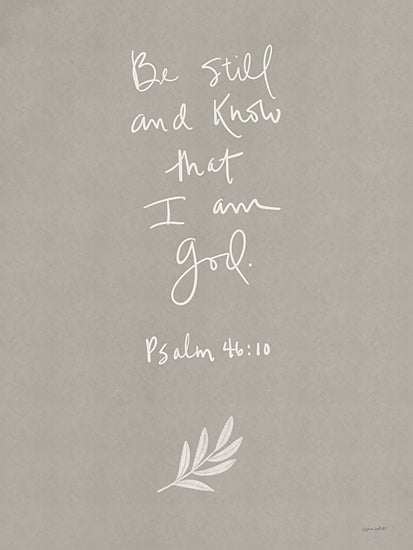 Be still
and Know
that
I am
God.
Psalm 46:10